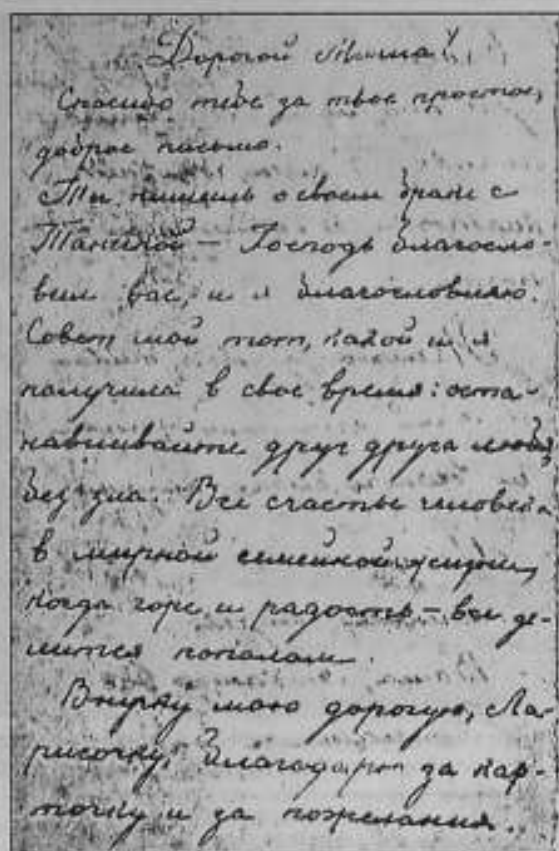 Дорогой Миша!
Спасибо тебе за твое простое,
доброе письмо.
Ты пишешь о своем браке с
Танечкой — Господь благосло-
вит вас, и я благословляю.
Совет мой тот, какой и я
получила в свое время: оста-
навливайте друг друга любя,
без зла. Все счастье человека
в мирной семейной жизни,
когда горе и радость — все де-
лится пополам.
Внучку мою дорогую, Ла-
рисочку, благодарю за кар-
точку и за пожелания.